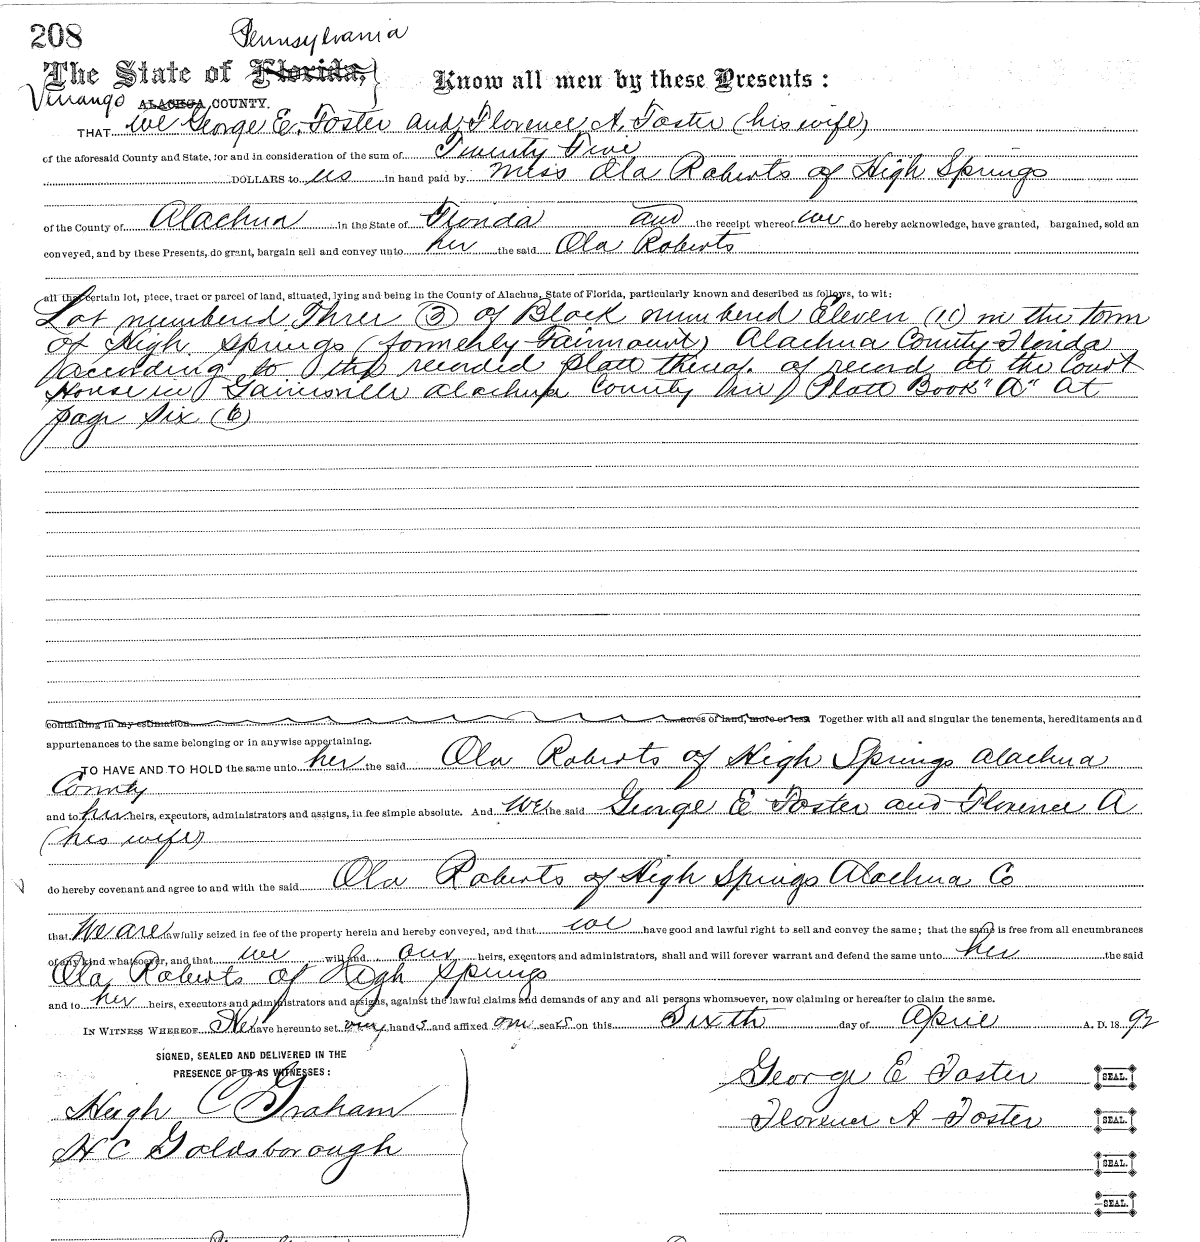 208
Pennsylvania
The State of Florida,
Know all men by these Presents :
Venango ALACHUA COUNTY.
THAT we George E. Foster and Florence A. Foster (his wife)
of the aforesaid County and State, for and in consideration of the sum of Twenty Five
DOLLARS to us in hand paid by Miss Ola Roberts of High Springs
of the County of Alachua in the State of Florida and the receipt whereof we do hereby acknowledge, have granted, bargained, sold an
conveyed, and by these Presents, do grant, bargain sell and convey unto her the said Ola Roberts
all that certain lot, piece, tract or parcel of land, situated, lying and being in the County of Alachua, State of Florida, particularly known and described as follows, to wit:
Lot numbered Three (3) of Block numbered Eleven (11) in the town
of High Springs (formerly Fairmount) Alachua County Florida
according to the recorded platt thereof. of record at the Court
House in Gainesville Alachua County in Platt Book "A" At
page Six (6)
containing in my estimation acres of land, more or less Together with all and singular the tenements, hereditaments and
appurtenances to the same belonging or in anywise appertaining.
TO HAVE AND TO HOLD the same unto her the said Ola Roberts of High Springs Alachua
County
and to her heirs, executors, administrators and assigns, in fee simple absolute. And We the said George E Foster and Florence A
(his wife)
do hereby covenant and agree to and with the said Ola Roberts of High Springs Alachua Co
that We are lawfully seized in fee of the property herein and hereby conveyed, and that we have good and lawful right to sell and convey the same; that the same is free from all encumbrances
of any kind whatsoever, and that we will and our heirs, executors and administrators, shall and will forever warrant and defend the same unto her the said
Ola Roberts of High Springs
and to her heirs, executors and administrators and assigns, against the lawful claims and demands of any and all persons whomsoever, now claiming or hereafter to claim the same.
IN WITNESS WHEREOF We have hereunto set hands and affixed our seals on this Sixth day of April A. D. 18 92
SIGNED, SEALED AND DELIVERED IN THE
PRESENCE OF US AS WITNESSES :
George E Foster SEAL.
Hugh C Graham
Florence A Foster SEAL.
H C Goldsborough
SEAL.
SEAL.